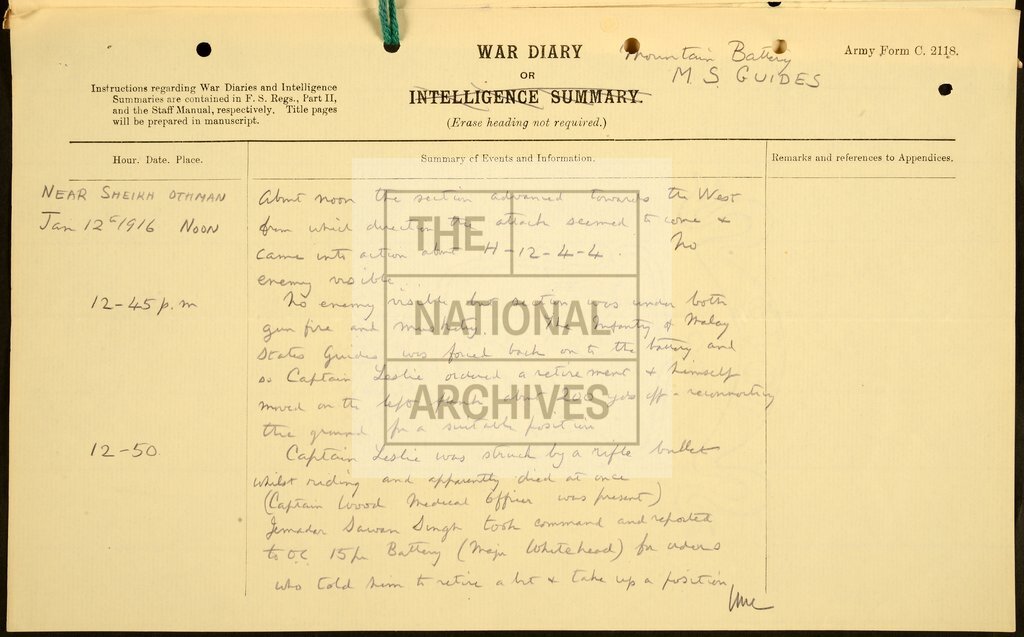 WAR DIARY
OR
INTELLIGENCE SUMMARY.
(Erase heading not required.)
Mountain Battery
M S GUIDES
Army Form C. 2118.
Instructions regarding War Diaries and Intelligence
Summaries are contained in F. S. Regs., Part II,
and the Staff Manual, respectively. Title pages
will be prepared in manuscript.
Hour. Date. Place.
Summary of Events and Information.
Remarks and references to Appendices.
NEAR SHEIKH OTHMAN
Jan 12th 1916 NOON
About noon the section advanced towards the West
from which direction the attack seemed to come &
came into action about H-12-4-4. No
enemy visible.
12-45 p.m
No enemy visible but section was under both
gun fire and musketry. The Infantry of Malay
States Guides was forced back on to the battery and
so Captain Leslie ordered a retirement & himself
moved on the left flank about 200 yds off - reconnoitring
the ground for a suitable position
12-50
Captain Leslie was struck by a rifle bullet
whilst riding and apparently died at once
(Captain Wood Medical Officer was present)
Jemadar Sawan Singh took command and reported
to OC 15pr Battery (Major Whitehead) for orders
who told him to retire a bit & take up a position
THE
NATIONAL
ARCHIVES